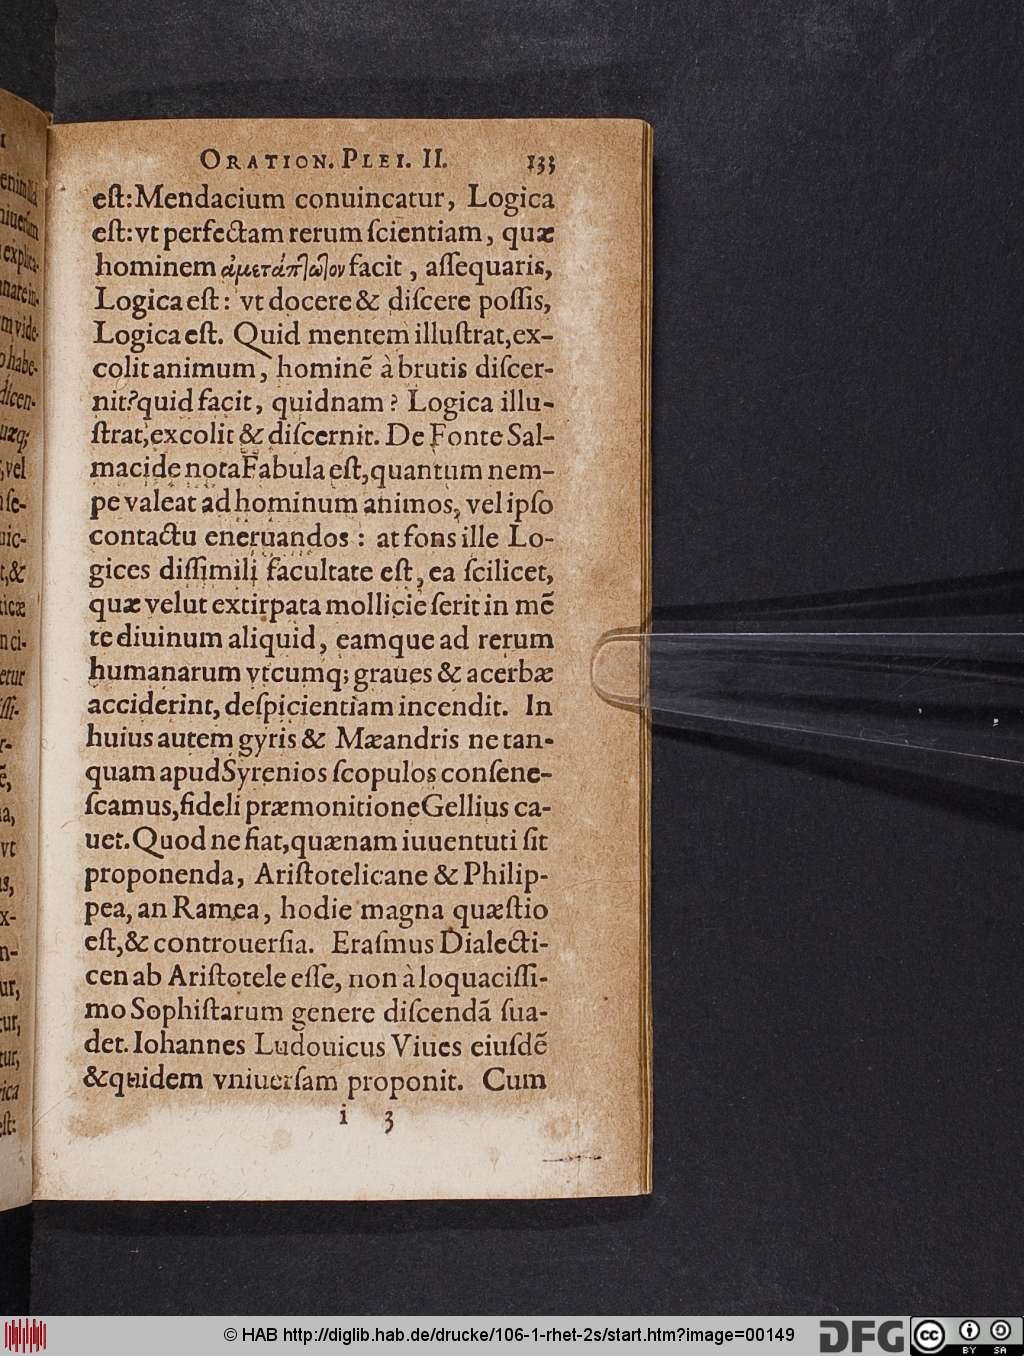 ORATION. PLEI. II. 133
eſt: Mendacium conuincatur, Logica
eſt: vt perfectam rerum ſcientiam, quæ
hominem ἀμετάπωτον facit, aſſequaris,
Logica eſt: vt docere & diſcere poſſis,
Logica eſt. Quid mentem illuſtrat, ex-
colit animum, hominē à brutis diſcer-
nit? quid facit, quidnam? Logica illu-
ſtrat, excolit & diſcernit. De Fonte Sal-
macide nota Fabula eſt, quantum nem-
pe valeat ad hominum animos, vel ipſo
contactu eneruandos: at fons ille Lo-
gices diſſimili facultate eſt, ea ſcilicet,
quæ velut extirpata mollicie ſerit in mē
te diuinum aliquid, eamque ad rerum
humanarum vtcumq; graues & acerbæ
acciderint, deſpicientiam incendit. In
huius autem gyris & Mæandris ne tan-
quam apud Syrenios ſcopulos conſene-
ſcamus, fideli præmonitione Gellius ca-
uet. Quod ne fiat, quænam iuuentuti ſit
proponenda, Ariſtotelicane & Philip-
pea, an Ramea, hodie magna quæſtio
eſt, & controuerſia. Eraſmus Dialecti-
cen ab Ariſtotele eſſe, non à loquaciſſi-
mo Sophiſtarum genere diſcendā ſua-
det. Iohannes Ludouicus Viues eiuſdē
& quidem vniuerſam proponit. Cum
i 3
© HAB http://diglib.hab.de/drucke/106-1-rhet-2s/start.htm?image=00149
DFG
cc BY SA